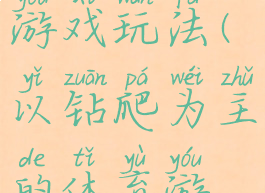 yóu xì wán fǎ
游戏玩法(
yǐ zuān pá wéi zhǔ
以钻爬为主
de tǐ yù yóu
的体育游